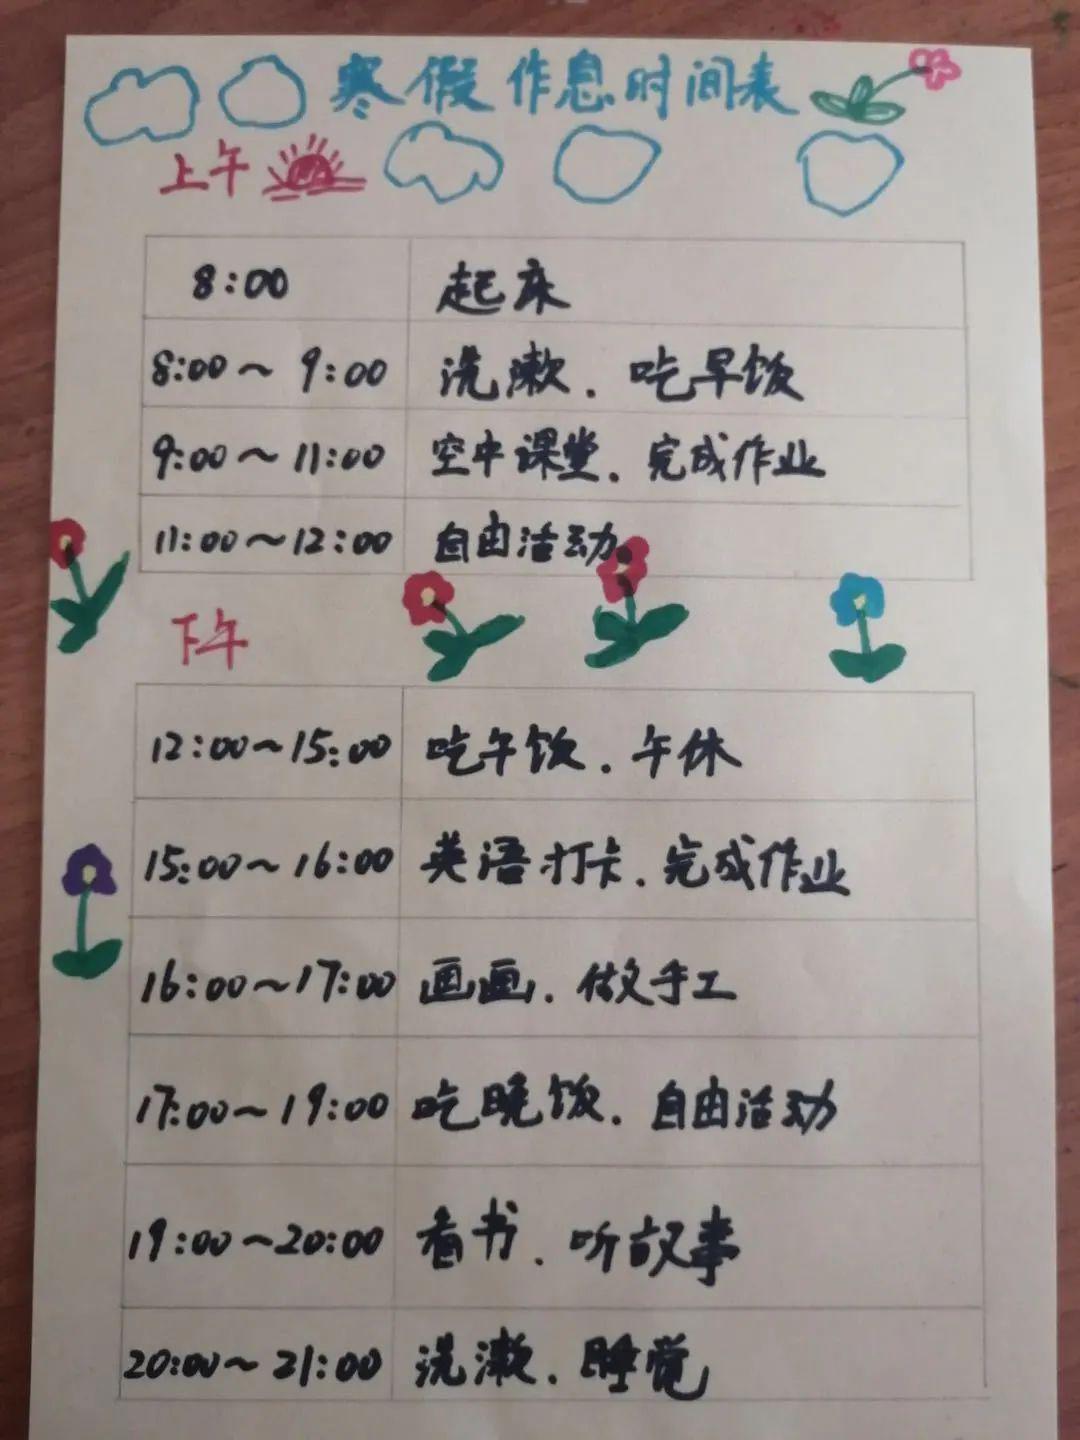 寒假作息时间表
上午
8:00 起床
8:00～9:00 洗漱.吃早饭
9:00～11:00 空中课堂.完成作业
11:00～12:00 自由活动.
下午
12:00～15:00 吃午饭.午休
15:00～16:00 英语打卡.完成作业
16:00～17:00 画画.做手工
17:00～19:00 吃晚饭.自由活动
19:00～20:00 看书.听故事
20:00～21:00 洗漱.睡觉